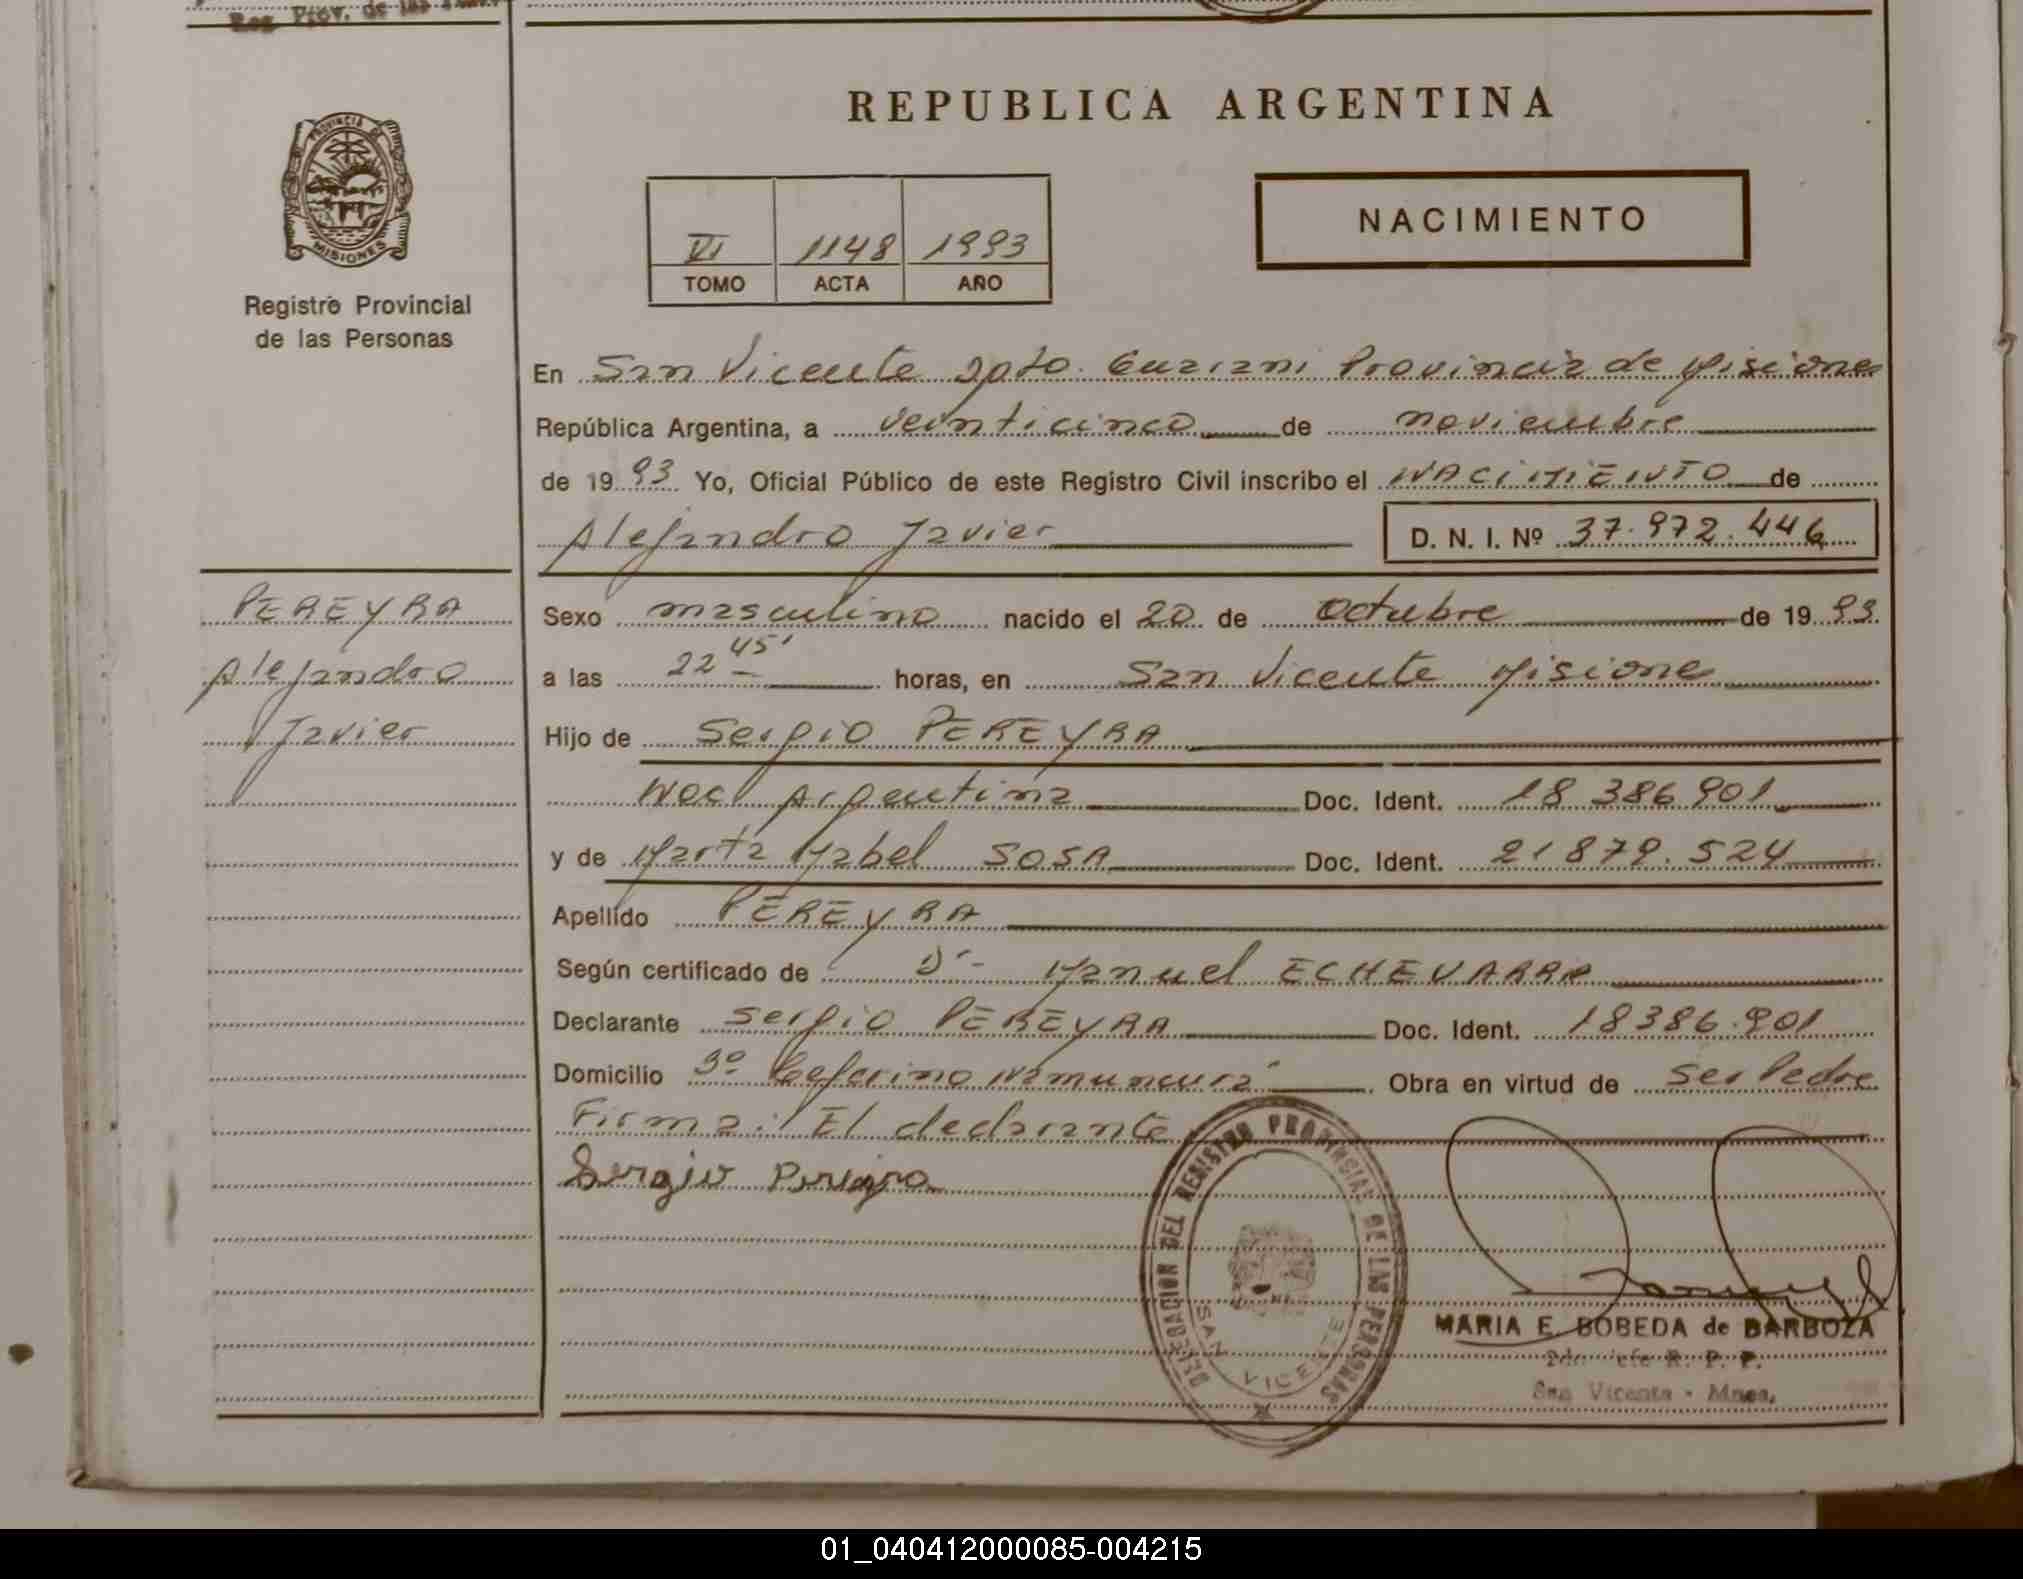 Reg. Prov. de las
REPUBLICA ARGENTINA
PROVINCIA DE
MISIONES
Registro Provincial
de las Personas
NACIMIENTO
VI 1148 1993
TOMO ACTA AÑO
En San Vicente Dpto. Guarani Provincia de Misiones
República Argentina, a veinticinco de noviembre
de 1993 Yo, Oficial Público de este Registro Civil inscribo el NACIMIENTO de
Alejandro Javier D. N. I. Nº 37.972.446
PEREYRA
Alejandro
Javier
Sexo masculino nacido el 20 de Octubre de 1993
a las 22 45' horas, en San Vicente Misione
Hijo de Sergio PEREYRA
Nac Argentina Doc. Ident. 18 386 901
y de Marta Mabel SOSA Doc. Ident. 21 879.524
Apellido PEREYRA
Según certificado de Dr- Manuel ECHEVARRA
Declarante Sergio PEREYRA Doc. Ident. 18386.901
Domicilio Bº Ceferino Namuncurá Obra en virtud de ser Padre
Firma: El declarante
Sergio Pereyra
DELEGACION DEL REGISTRO PROVINCIAL DE LAS PERSONAS
SAN VICENTE
MARIA E. BOBEDA de BARBOZA
2do Jefe R. P. P.
San Vicente - Mnes.
01_040412000085-004215